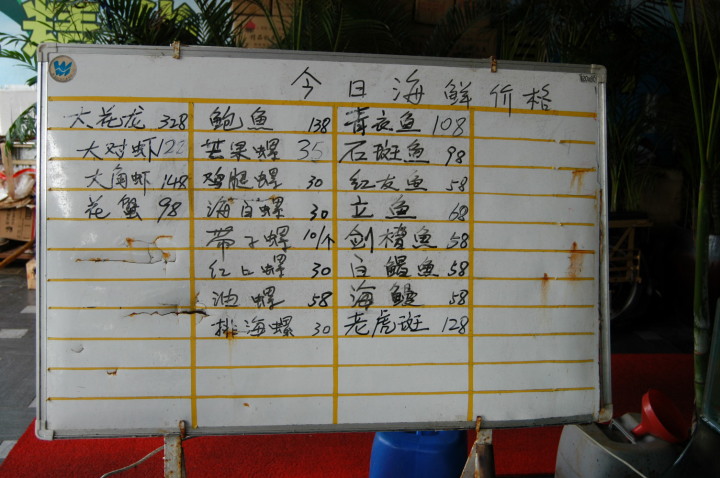 今日海鲜价格
大花龙 328 鲍鱼 138 青衣鱼 108
大对虾 122 芒果螺 35 石斑鱼 98
大角虾 148 鸡腿螺 30 红友鱼 58
花蟹 98 海白螺 30 立鱼 68
带子螺 10/个 剑榜鱼 58
红口螺 30 白鳗鱼 58
油螺 58 海鳗 58
排海螺 30 老虎斑 128